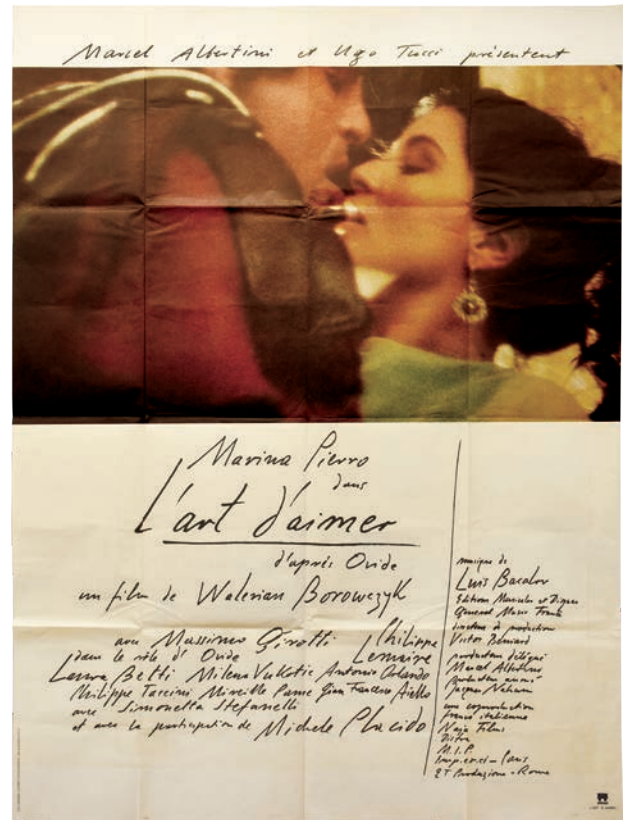 Marcel Albertini et Ugo Tucci présentent
Marina Pierro
dans
L'art d'aimer
d'après Ovide
un film de Walerian Borowczyk
avec Massimo Girotti
dans le rôle d'Ovide
Philippe Lemaire
Laura Betti Milena Vukotic Antonio Orlando
Philippe Taccini Mireille Pame Gian Franco Aiello
avec Simonetta Stefanelli
et avec la participation de Michele Placido
musique de
Luis Bacalov
Editions Musicales et Disques
General Music France
directeur de production
Victor Beniard
producteur délégué
Marcel Albertini
producteur associé
Jacques Nahum
une coproduction
franco italienne
Naja Films
Distra
M.I.P.
Imp.ex.ci - Paris
2T Produzione - Roma